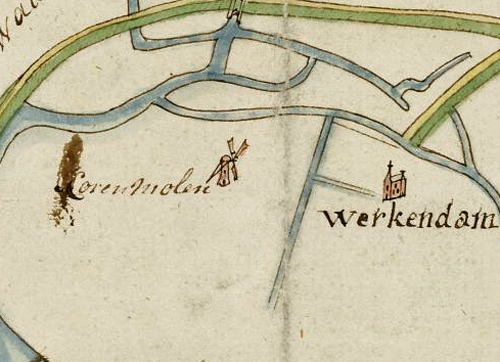 Koren Molen
Werkendam